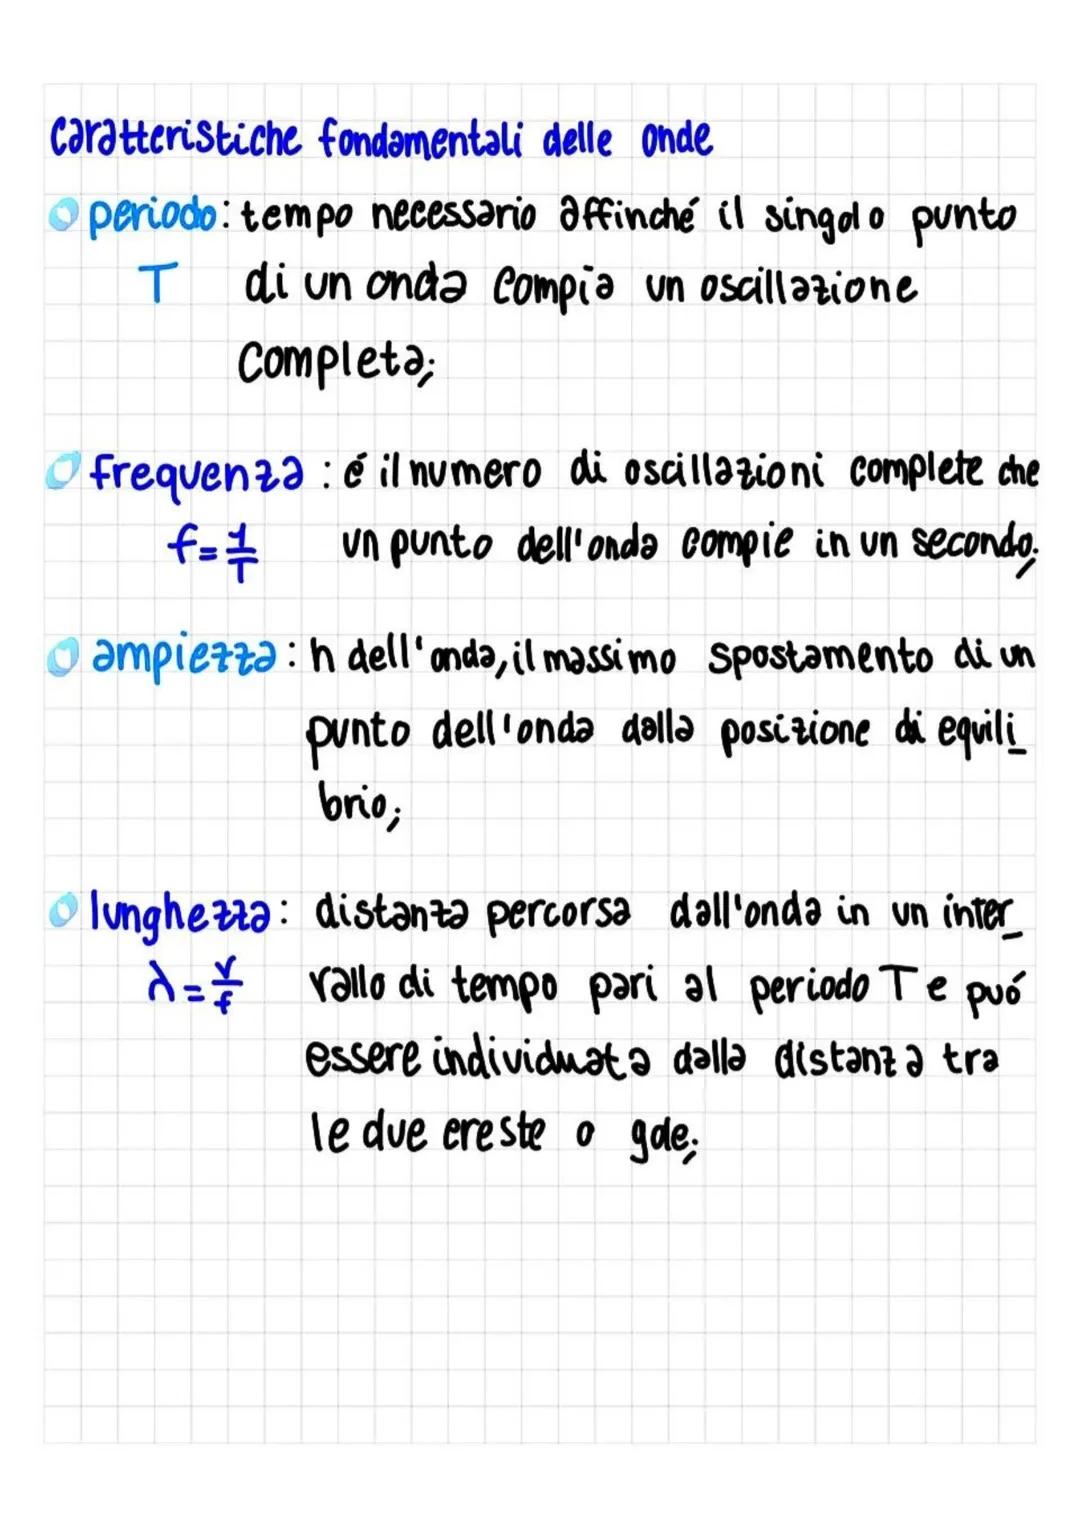 caratteristiche fondamentali delle onde
periodo: tempo necessario affinché il singolo punto
T di un onda compia un oscillazione
completa;
frequenza: é il numero di oscillazioni complete che
f=1/T un punto dell'onda compie in un secondo.;
ampiezza: h dell'onda, il massimo spostamento di un
punto dell'onda dalla posizione di equili_
brio;
lunghezza: distanza percorsa dall'onda in un inter_
λ=v/f vallo di tempo pari al periodo T e puó
essere individuata dalla distanza tra
le due creste o gole;